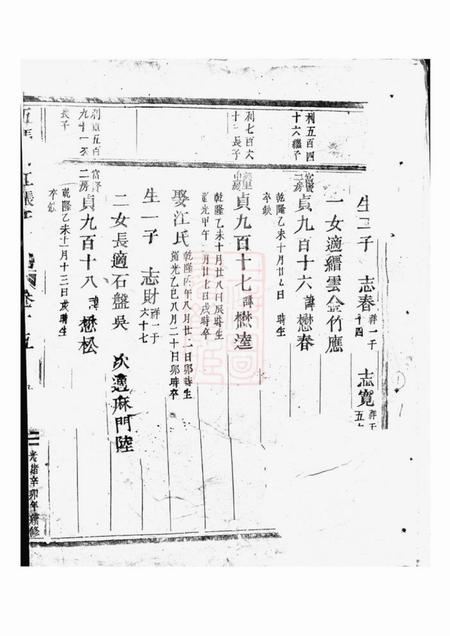 生二子 志春 祥一千
十四 志寬 祥一千
五
一女適縉雲金竹應
利五百四
十六繼子
貞九百十六 諱懋春
乾隆乙未十月廿七日 時生
卒缺
利七百六
十 長子
貞九百十七 諱懋逵
乾隆乙未十月廿八日辰時生
道光甲午 月廿七日戌時卒
娶江氏 乾隆 年八月廿二日卯時生
道光乙巳八月二十日卯時卒
生一子 志財 祥一千
六十七
二女長適石盤吳 次適麻門陸
利 五百
九十一 次
子
貞九百十八 諱懋松
乾隆乙未十一月十三日戌時生
卒缺
光緒辛卯年續修